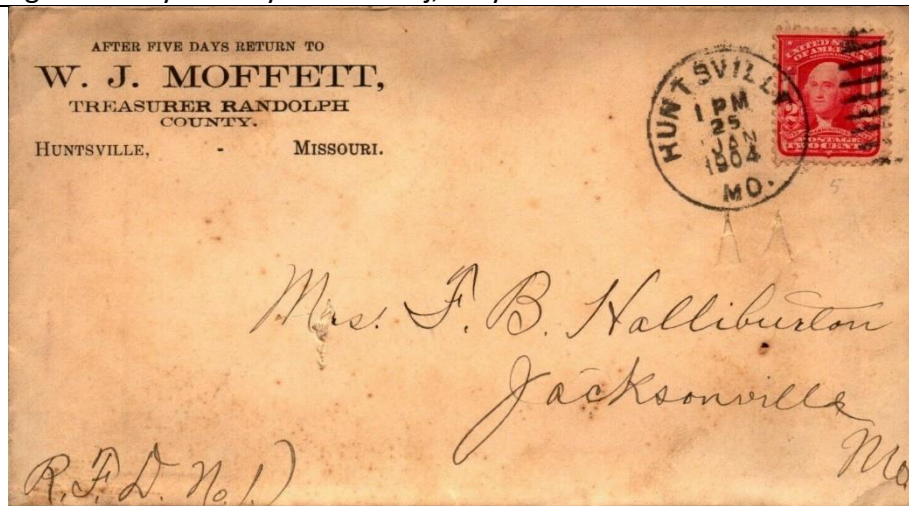 AFTER FIVE DAYS RETURN TO
W. J. MOFFETT,
TREASURER RANDOLPH
COUNTY.
HUNTSVILLE, - MISSOURI.
HUNTSVILLE
1 PM
25
JAN
1904
MO.
UNITED STATES
OF AMERICA
2
POSTAGE
TWO CENTS
5
Mrs. F. B. Halliburton
Jacksonville
Mo
R.F.D. No. 1.)